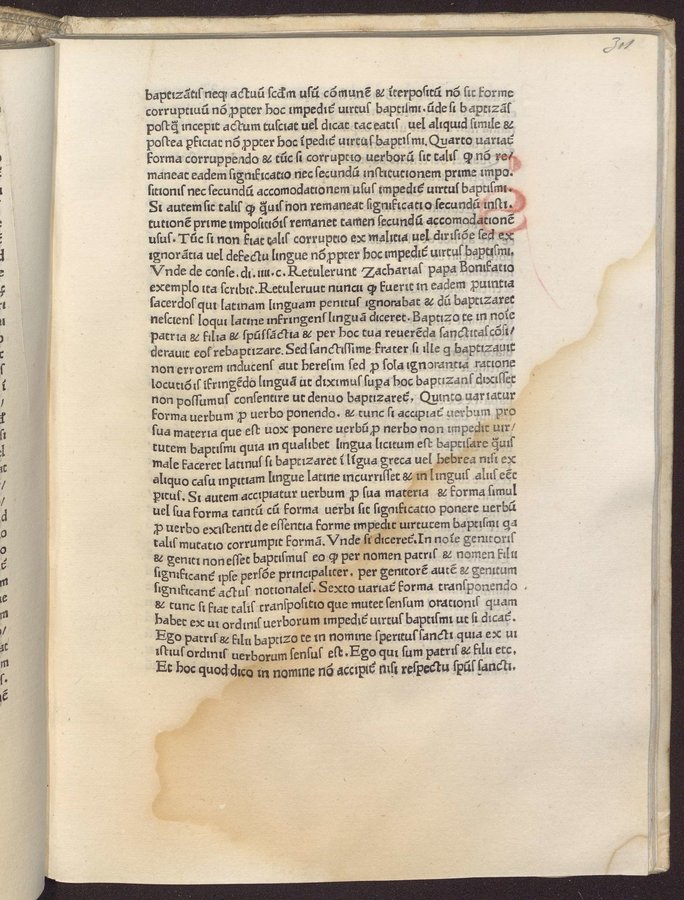 301
baptizātis neqȝ actuū scďm usū cōmunē & īterpositū nō sit forme
corruptiuū nō ꝓpter hoc impediť uirtus baptismi. ūde si baptizās
postq̄ incepit actum tusciat uel dicat taceatis uel aliquid simile &
postea ꝑficiat nō ꝓpter hoc īpediť uirtus baptismi. Quarto uariať
forma corruppendo & tūc si corruptio verborū sit talis ꝙ nō re/
maneat eadem significatio nec secundū institutionem prime impo.
sitionis nec secundū accomodationem usus impediť uirtus baptismi.
Si autem sit talis ꝙ q̄uis non remaneat significatio secundū insti.
tutionē prime impositiōis remanet tamen secundū accomodationē
usus. Tūc si non fiat talis corruptio ex malitia uel dirisiōe sed ex
ignorātia uel defectu lingue nō ꝓpter hoc impediť uirtus baptismi.
Vnde de conse. di. iiii. c. Retulerunt Zacharias papa Bonifatio
exemplo ita scribit. Retuleruut nuncii ꝙ fuerit in eadem ꝓuintia
sacerdos qui latinam linguam penitus ignorabat & dū baptizaret
nesciens loqui latine infringens linguā diceret. Baptizo te in noīe
patria & filia & spūssāctia & per hoc tua reuerēda sanctitas cōsi/
derauit eos rebaptizare. Sed sanctissime frater si ille q baptizauit
non errorem inducens aut heresim sed ꝓ sola ignorantia ratione
locutiōis īfringēdo linguā ut diximus supa hoc baptizans dixisset
non possumus consentire ut denuo baptizareť. Quinto uariatur
forma verbum ꝓ uerbo ponendo. & tunc si accipiať uerbum pro
sua materia que est uox ponere uerbū ꝓ nerbo non impedit uir/
tutem baptismi quia in qualibet lingua licitum est baptisare q̄uis
male faceret latinus si baptizaret ī līgua greca uel hebrea nisi ex
aliquo casu inpitiam lingue latine incurrisset & in linguis aliis eēt
ꝑitus. Si autem accipiatur verbum ꝓ sua materia & forma simul
uel sua forma tantū cū forma uerbi sit significatio ponere uerbū
ꝓ uerbo existenti de essentia forme impedit uirtutem baptismi qa
talis mutatio corrumpit formā. Vnde si diceret. In noīe genitoris
& geniti non esset baptismus eo ꝙ per nomen patris & nomen filii
significanť ipse persōe principaliter. per genitorē autē & genitum
significanť actus notionales. Sexto uariať forma transponendo
& tunc si fiat talis transpositio que mutet sensum orationis quam
habet ex ui ordinis uerborum impediť uirtus baptismi ut si dicať.
Ego patris & filii baptizo te in nomine speritus sancti quia ex ui
istius ordinis uerborum sensus est. Ego qui sum patris & filii etc.
Et hoc quod dico in nomine nō accipiť nisi respectu spūs sancti.